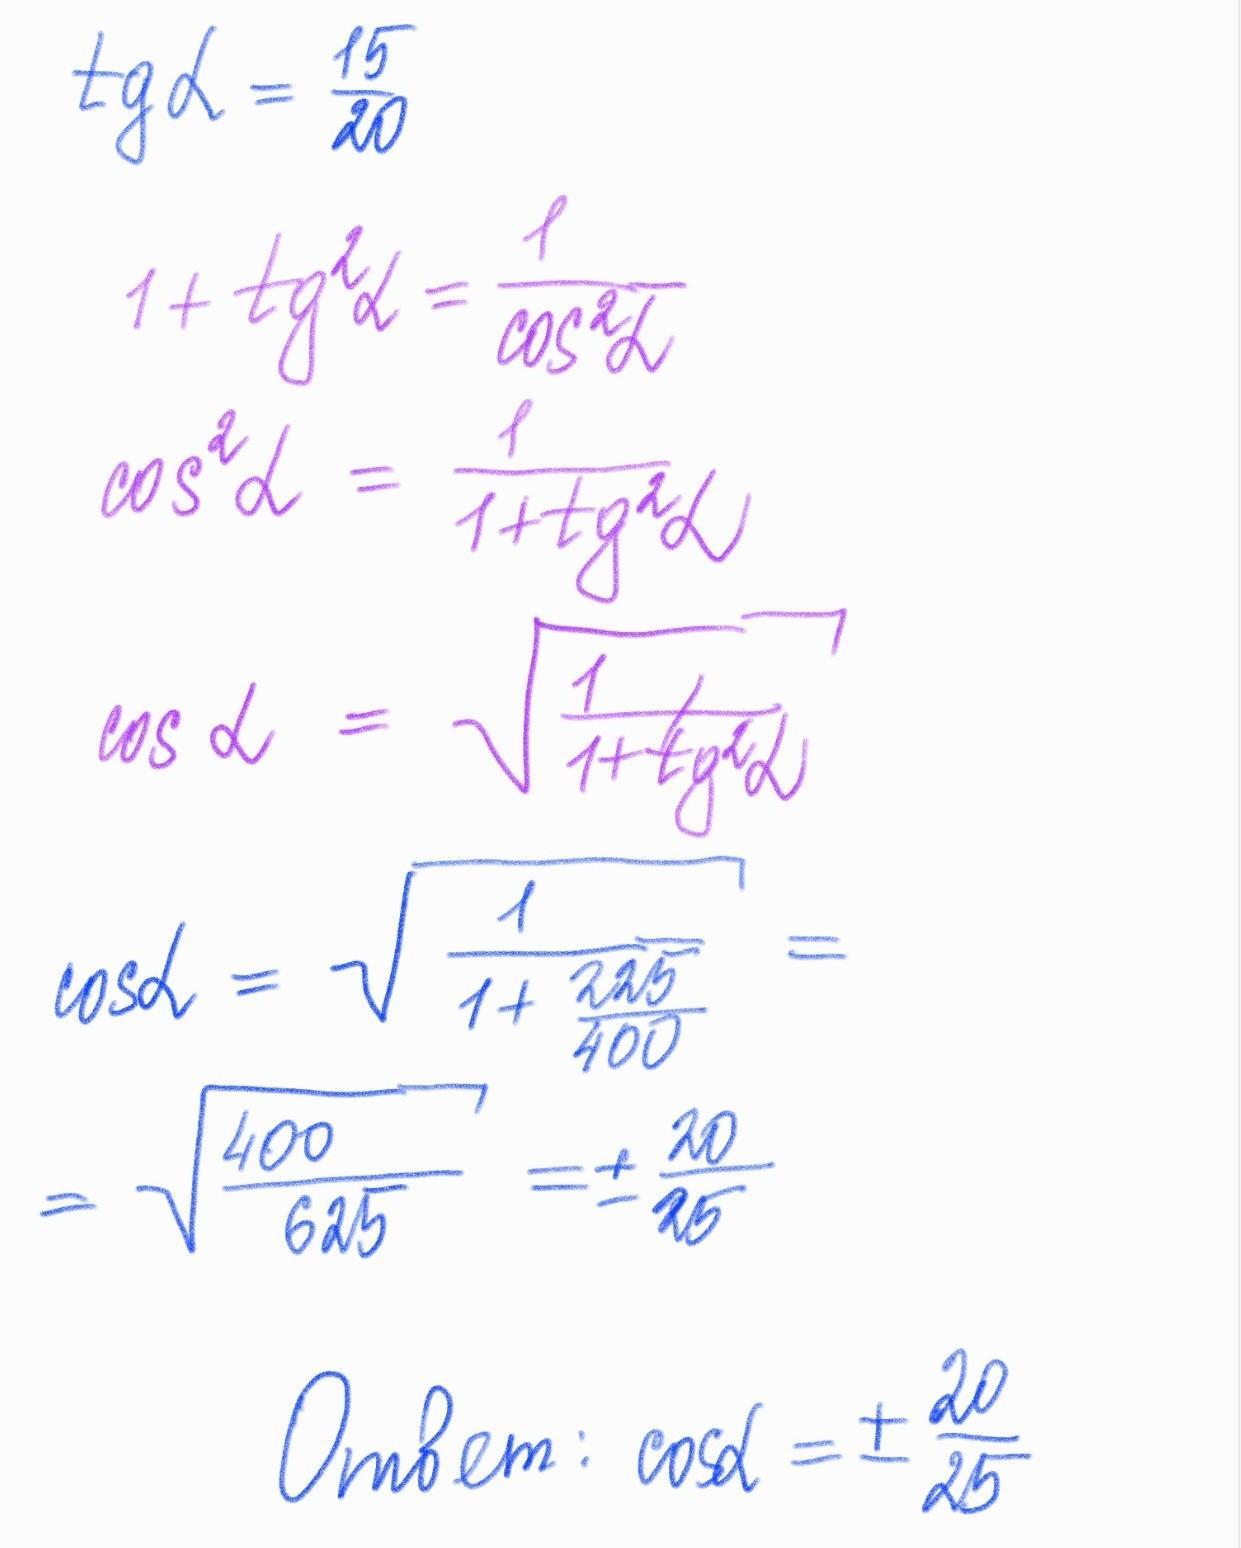 tgα = 15/20
1 + tg²α = 1/cos²α
cos²α = 1/(1+tg²α)
cos α = √(1/(1+tg²α))
cosα = √(1/(1+225/400)) =
= √(400/625) = ± 20/25
Ответ: cosα = ± 20/25